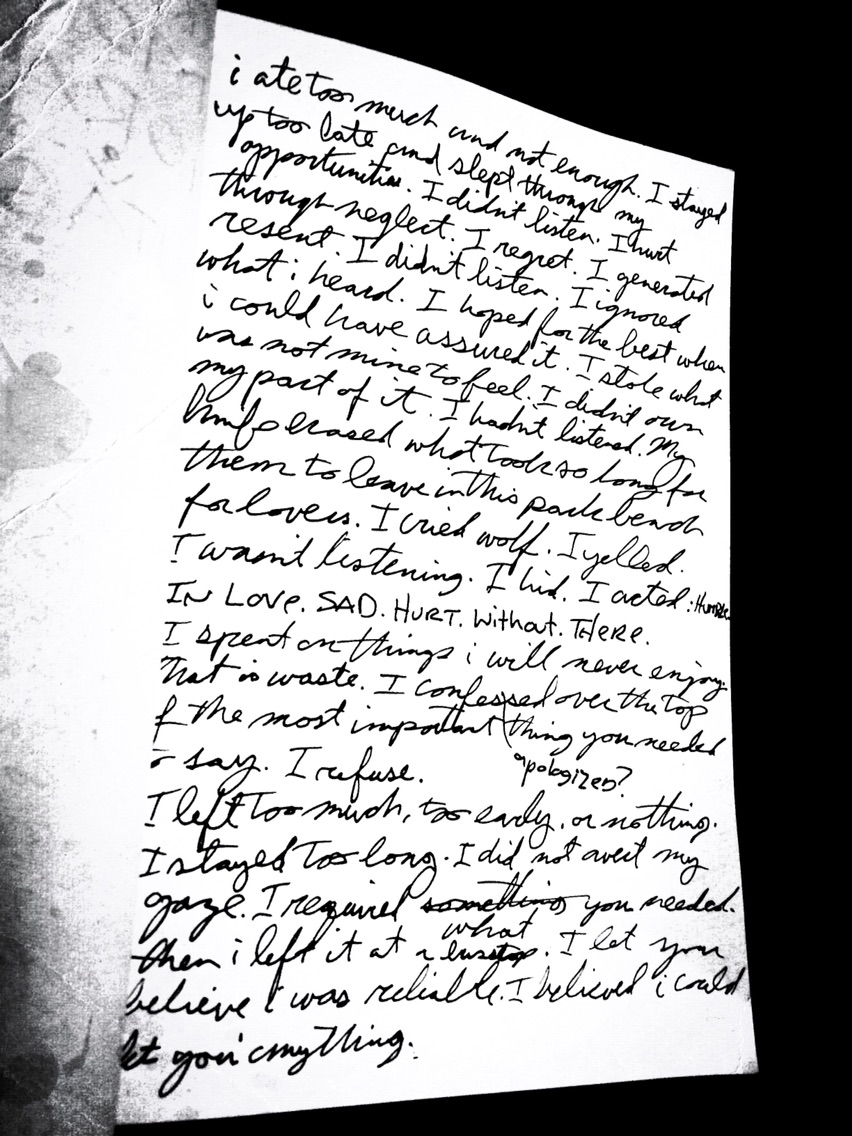 i ate too much and not enough. I stayed
up too late and slept through my
opportunities. I didn't listen. I hurt
through neglect. I regret. I generated
resent. I didn't listen. I ignored
what i heard. I hoped for the best when
i could have assured it. I stole what
was not mine to feel. I didn't own
my part of it. I hadn't listened. My
erased what took so long for
them to leave in this park bench
for lovers. I cried wolf. I yelled.
I wasn't listening. I hid. I acted: Humble.
IN LOVE. SAD. HURT. Without. THERE.
I spent on things i will never enjoy.
That is waste. I confessed over the top
f the most important thing you needed
say. I refuse.
apologized?
I left too much, too early, or nothing.
I stayed too long. I did not avert my
gaze. I required something you needed.
what
then i left it at a bus stop. I let you
believe i was reliable. I believed i could
let you anything.